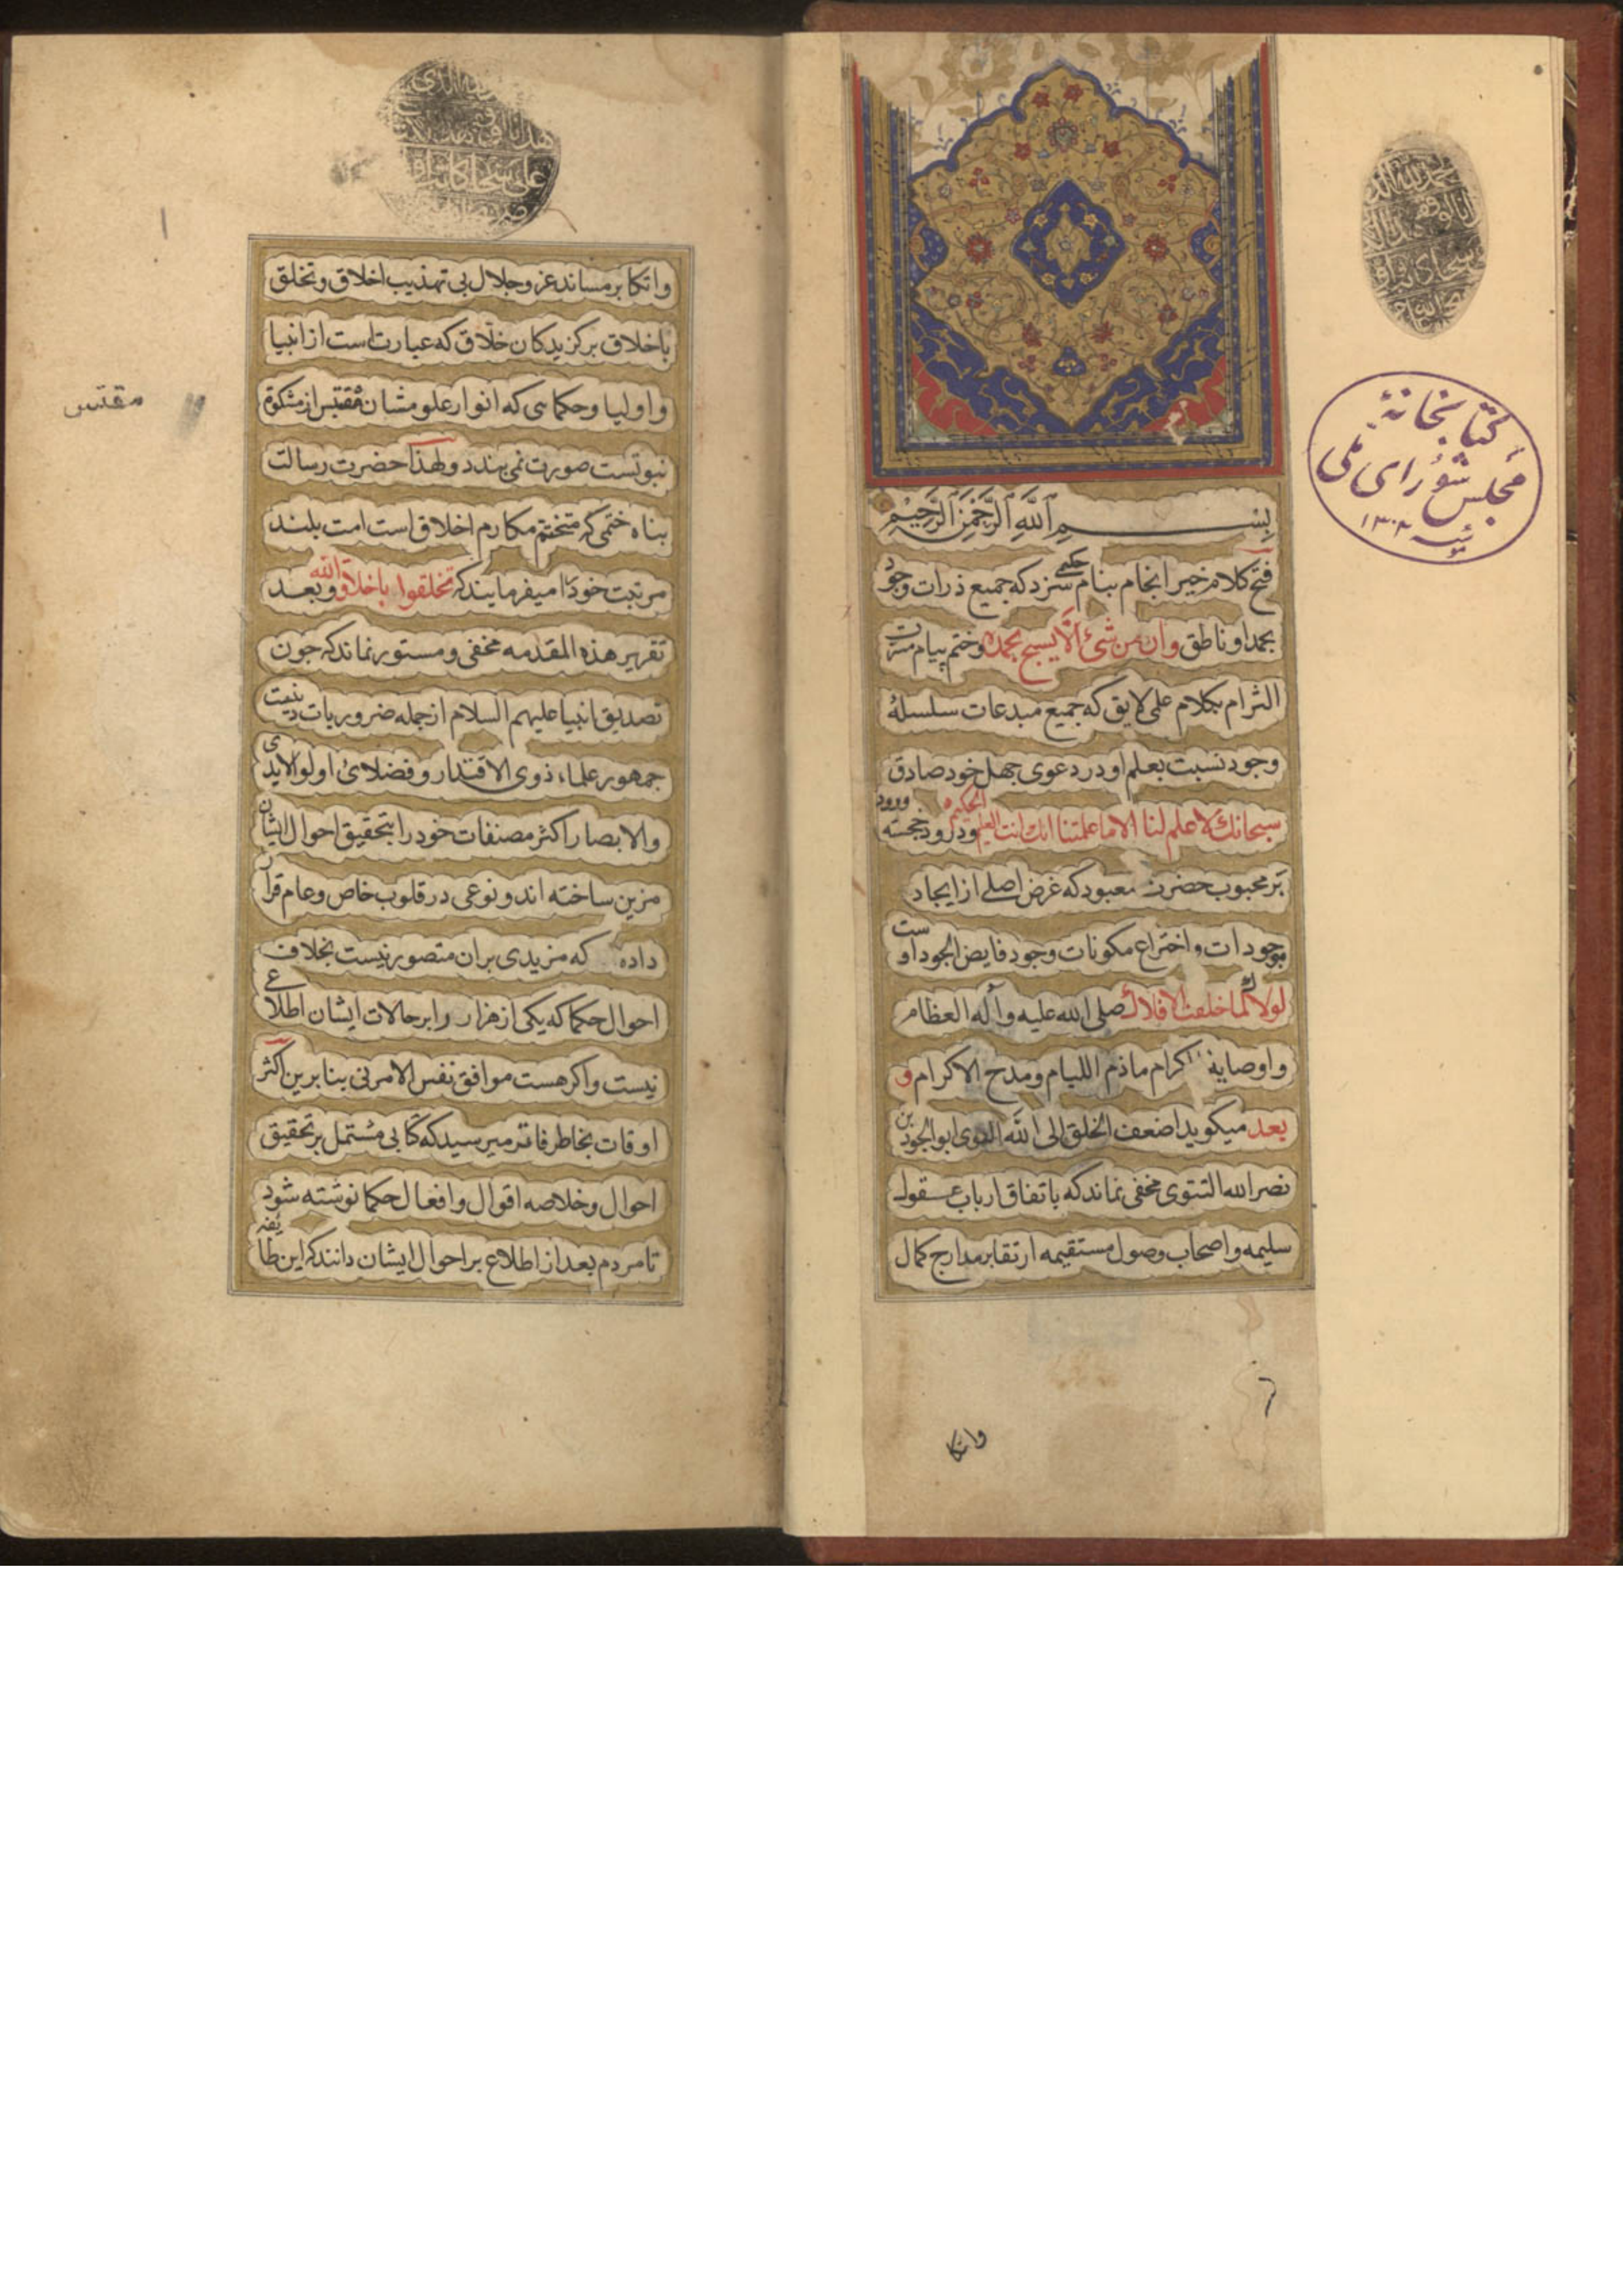 بسم الله الرحمن الرحیم
فتح کلام خیر انجام بنام حکیمی سزد که جمیع ذرات وجود
بحمد او ناطق وان من شیء الا یسبح بحمده وختم پیام
التزام بکلام علی لایق که جمیع مبدعات سلسلهٔ
وجود نسبت بعلم او در دعوی جهل خود صادق
سبحانك لا علم لنا الا ما علمتنا انك انت العلیم الحکیم و درود خجسته ورود
بر محبوب حضرت معبود که غرض اصلی از ایجاد
موجودات و اختراع مکونات وجود فایض الجود اوست
لولاك لما خلقت الافلاك صلی الله علیه وآله العظام
واوصیایه الکرام ماذم اللیام ومدح الاکرام و
بعد میکوید اضعف الخلق الی الله القوی ابو الجود بن
نصرالله التتوی مخفی نماند که باتفاق ارباب عقول
سلیمه واصحاب وصول مستقیمه ارتقا بر مدارج کمال
واتکا
کتابخانهٔ
مجلس شورای ملی
واتکا بر مساند عز وجلال بی تهذیب اخلاق وتخلق
باخلاق برکزیدکان خلاق که عبارت است از انبیا
واولیا وحکمایی که انوار علومشان مقتبس از مشکوة
نبوتست صورت نمی بندد ولهذا حضرت رسالت
پناه ختمی که متختم مکارم اخلاق است امت بلند
مرتبت خود را میفرمایند که تخلقوا باخلاق الله وبعد
تقریر هذه المقدمه مخفی ومستور نماند که چون
تصدیق انبیا علیهم السلام از جمله ضروریات دینیت
جمهور علماء ذوی الاقتدار وفضلای اولو الایدی
والابصار اکثر مصنفات خود را بتحقیق احوال ایشان
مزین ساخته اند ونوعی در قلوب خاص وعام قرار
داده که مزیدی بران متصور نیست بخلاف
احوال حکما که یکی از هزار را بر حالات ایشان اطلاع
نیست واکر هست موافق نفس الامر نی بنا برین اکثر
اوقات بخاطر فاتر میرسید که کتابی مشتمل بر تحقیق
احوال وخلاصه اقوال وافعال حکما نوشته شود
تا مردم بعد از اطلاع بر احوال ایشان دانند که این طایفه
مقتبس